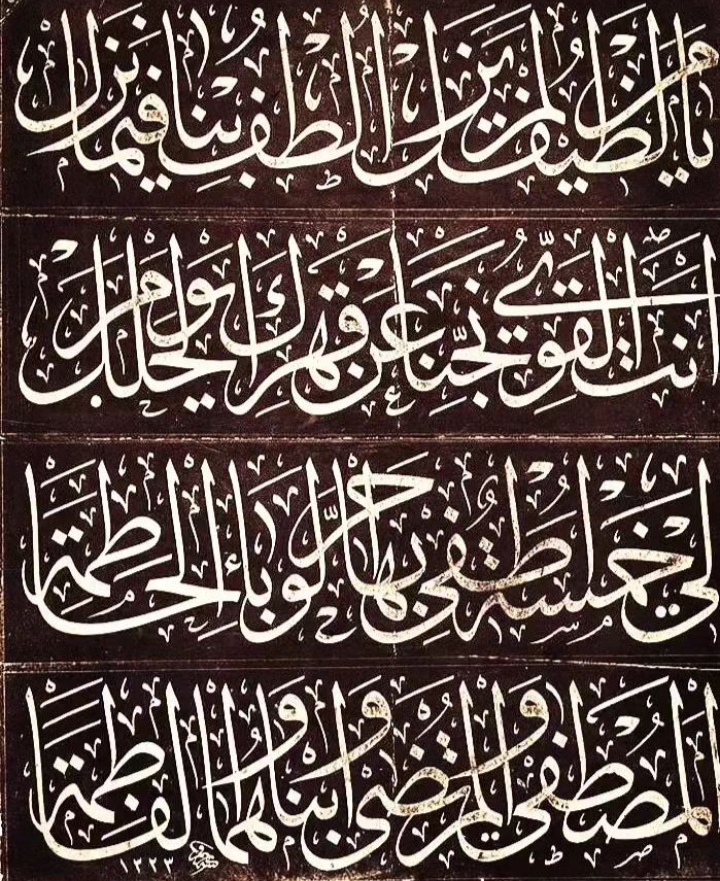 يا من لطيف لم يزل الطف بنا فيما نزل
أنت القوي نجنا عن قهرك يوم الخلل
لي خمسة أطفي بها حر الوباء الحاطمة
المصطفى والمرتضى وابناهما والفاطمة
١٣٢٣